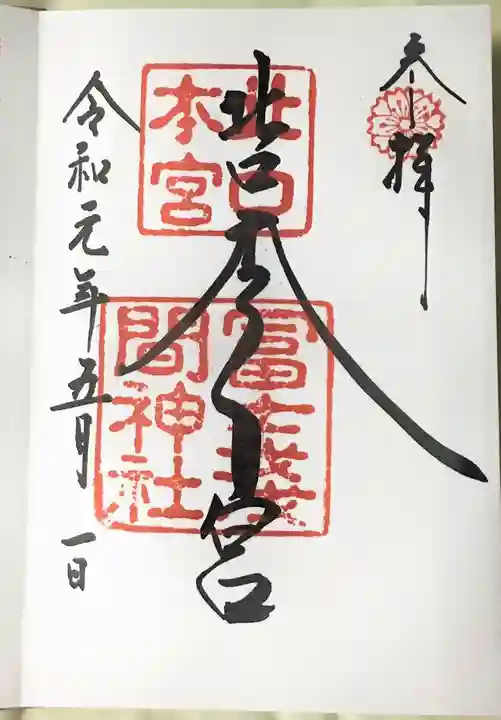 奉拝
北口本宮
北口
本宮
冨士淺
間神社
令和元年五月一日